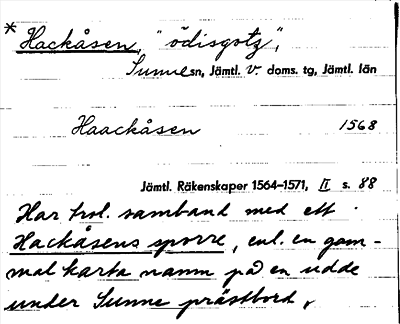 * Hackåsen, "ödisgotz",
Sunne sn, Jämtl. v. doms. tg, Jämtl. län
Haackåsen 1568
Jämtl. Räkenskaper 1564–1571, II s. 88
Har trol. samband med ett
Hackåsens sporre, enl. en gam-
mal karta namn på en udde
under Sunne prästbord.